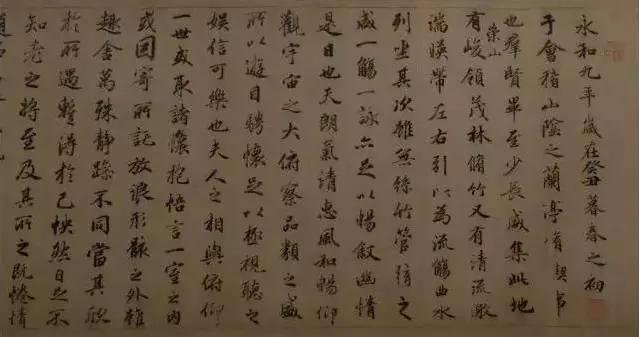 永和九年歲在癸丑暮春之初
于會稽山陰之蘭亭脩禊事
也群賢畢至少長咸集此地
有崇山峻領茂林脩竹又有清流激
湍暎帶左右引以為流觴曲水
列坐其次雖無絲竹管弦之
盛一觴一詠亦足以暢敘幽情
是日也天朗氣清惠風和暢仰
觀宇宙之大俯察品類之盛
所以遊目騁懷足以極視聽之
娛信可樂也夫人之相與俯仰
一世或取諸懷抱悟言一室之內
或因寄所託放浪形骸之外雖
趣舍萬殊靜躁不同當其欣
於所遇暫得於己怏然自足不
知老之將至及其所之既惓情